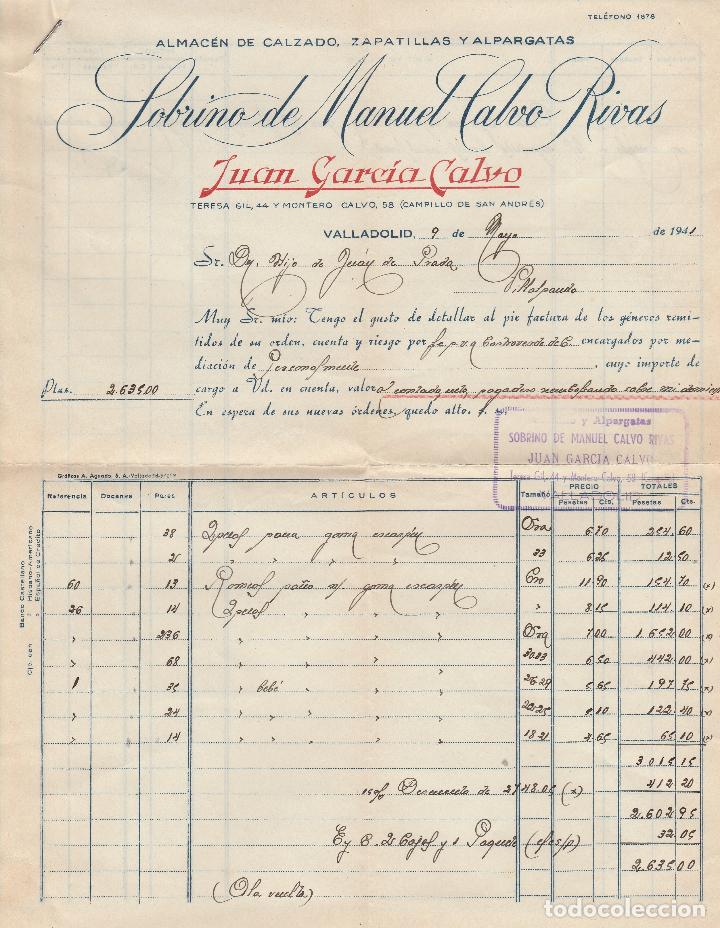 TELÉFONO 1878
ALMACÉN DE CALZADO, ZAPATILLAS Y ALPARGATAS
Sobrino de Manuel Calvo Rivas
Juan García Calvo
TERESA GIL, 44 Y MONTERO CALVO, 58 (CAMPILLO DE SAN ANDRÉS)
VALLADOLID, 9 de Mayo de 1941
Sr. Dn. Hijo de Juán de Prada
Villalpando
Muy Sr. mío: Tengo el gusto de detallar al pie factura de los géneros remi-
tidos de su orden, cuenta y riesgo por encargados por me-
diación de Personalmente, cuyo importe de
Ptas. 2.635.00 cargo a Vd. en cuenta, valor al contado, neto, pagadero reembolsando sobre mi dominio
En espera de sus nuevas órdenes, quedo atto. s.
y Alpargatas
SOBRINO DE MANUEL CALVO RIVAS
JUAN GARCIA CALVO
Teresa Gil, 44 y Montero Calvo, 58
VALLADOLID
Gráficos A. Aguado, S. A.-Valladolid
Cje. con
Banco Castellano
» Hispano-Americano
» Español de Crédito
Referencia Docenas Pares ARTÍCULOS Tamaño PRECIO Pesetas Cts. TOTALES Pesetas Cts.
38 para goma escarpin 6.70 254.60
2 » » » » 33 6.25 12.50
60 13 paño n/ goma escarpin 11.90 154.70 (x)
26 14 » » » » 8.15 114.10 (x)
» 236 » » » 7.00 1.652.00 (x)
» 68 » » » 30.33 6.50 442.00 (x)
1 35 » bebé » » 26-29 5.65 197.75 (x)
» 24 » » » » 22/25 5.10 122.40 (x)
» 14 » » » » 18-21 4.65 65.10 (x)
3.015.15
15% Descuento de 2748.05 (x) 412.20
2.602.95
E y E. 2 Cajas y 1 Paquete 32.05
2.635.00
(A la vuelta)
todocoleccion.net